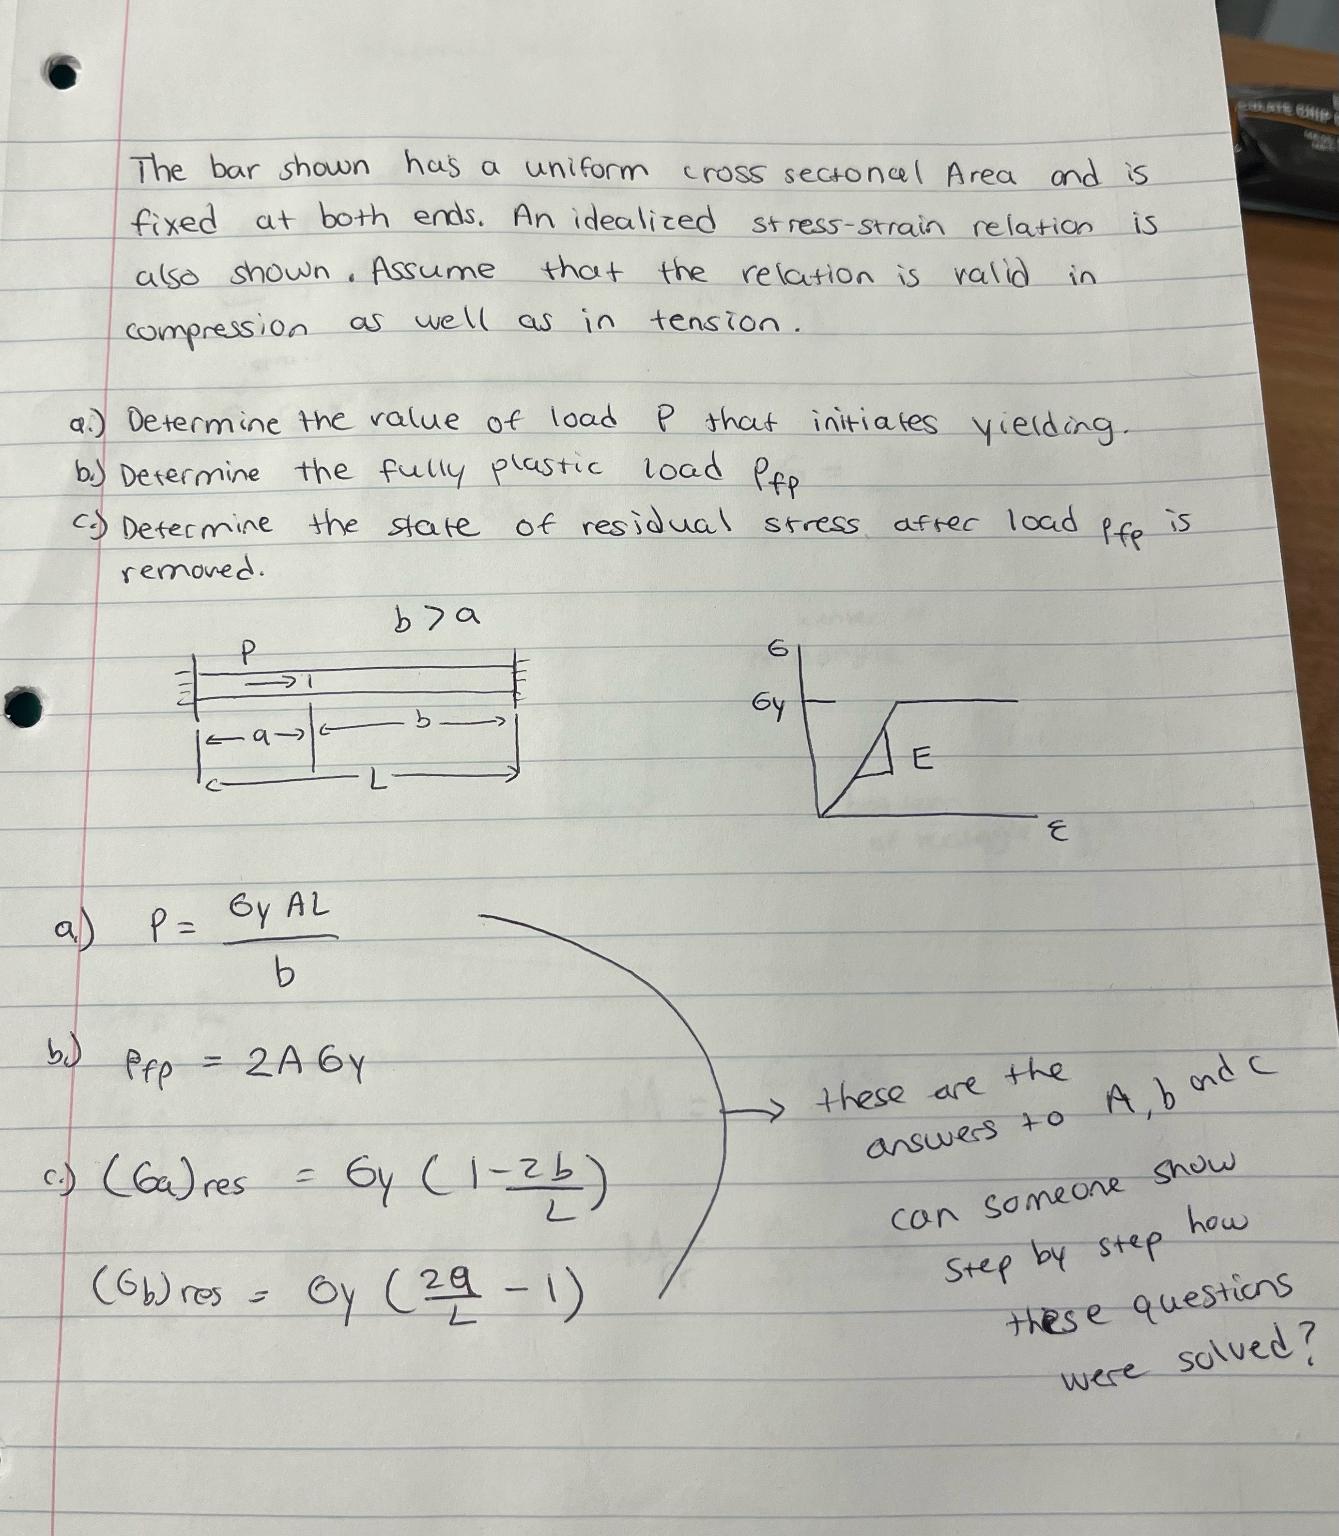 The bar shown has a uniform cross sectoncel Area and is
fixed at both ends. An idealized stress-strain relation is
also shown. Assume that the relation is valid in
compression as well as in tension.
a.) Determine the value of load P that initiates yielding.
b.) Determine the fully plastic load Pfp
c.) Determine the state of residual stress after load Pfp is
removed.
b > a
P
a b
L
σ
σy
E
ε
a.) P = σy AL / b
b.) Pfp = 2Aσy
c.) (σa)res = σy (1 - 2b/L)
(σb)res = σy (2a/L - 1)
these are the
answers to A, b and c
can someone show
step by step how
these questions
were solved?